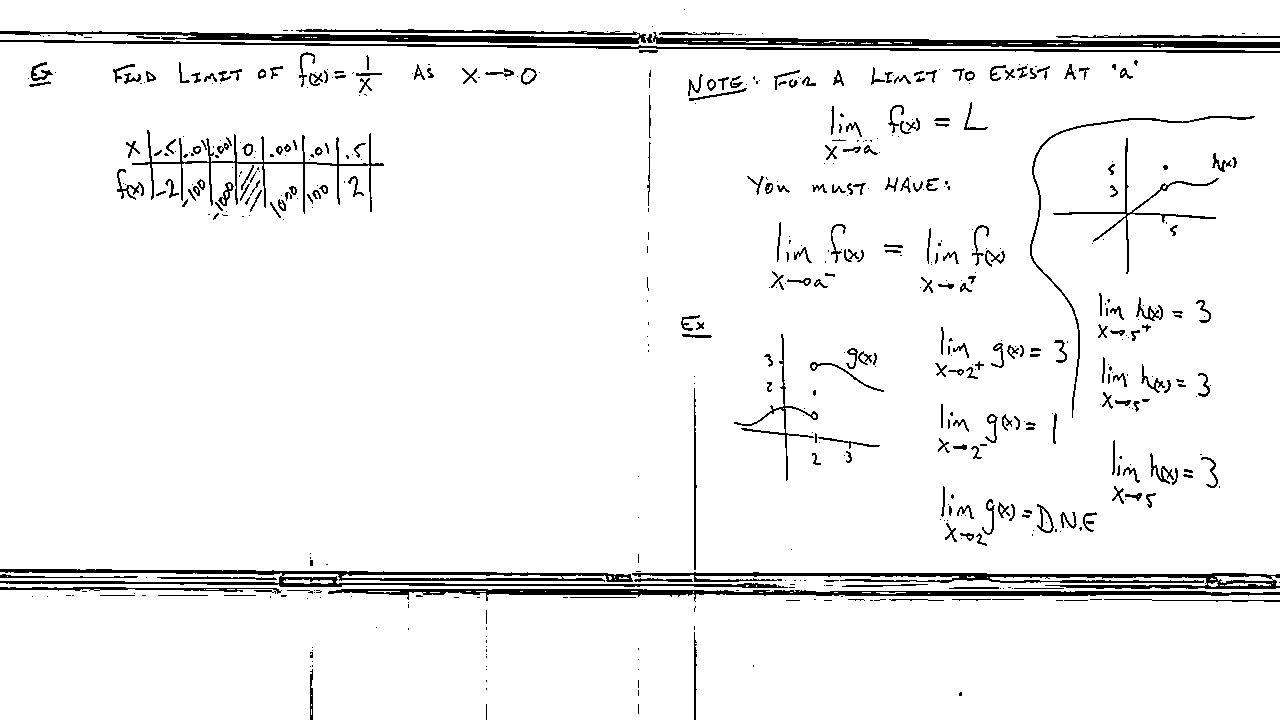 Ex FIND LIMIT OF f(x) = 1/x AS x → 0
x | -.5 | -.01 | -.001 | 0 | .001 | .01 | .5
f(x) | -2 | -100 | -1000 | | 1000 | 100 | 2
NOTE: FOR A LIMIT TO EXIST AT 'a'
lim x→a f(x) = L
YOU MUST HAVE:
lim x→a⁻ f(x) = lim x→a⁺ f(x)
Ex
3
2
1
g(x)
2 3
lim x→2⁺ g(x) = 3
lim x→2⁻ g(x) = 1
lim x→2 g(x) = D.N.E
5
3
h(x)
5
lim x→5⁺ h(x) = 3
lim x→5⁻ h(x) = 3
lim x→5 h(x) = 3